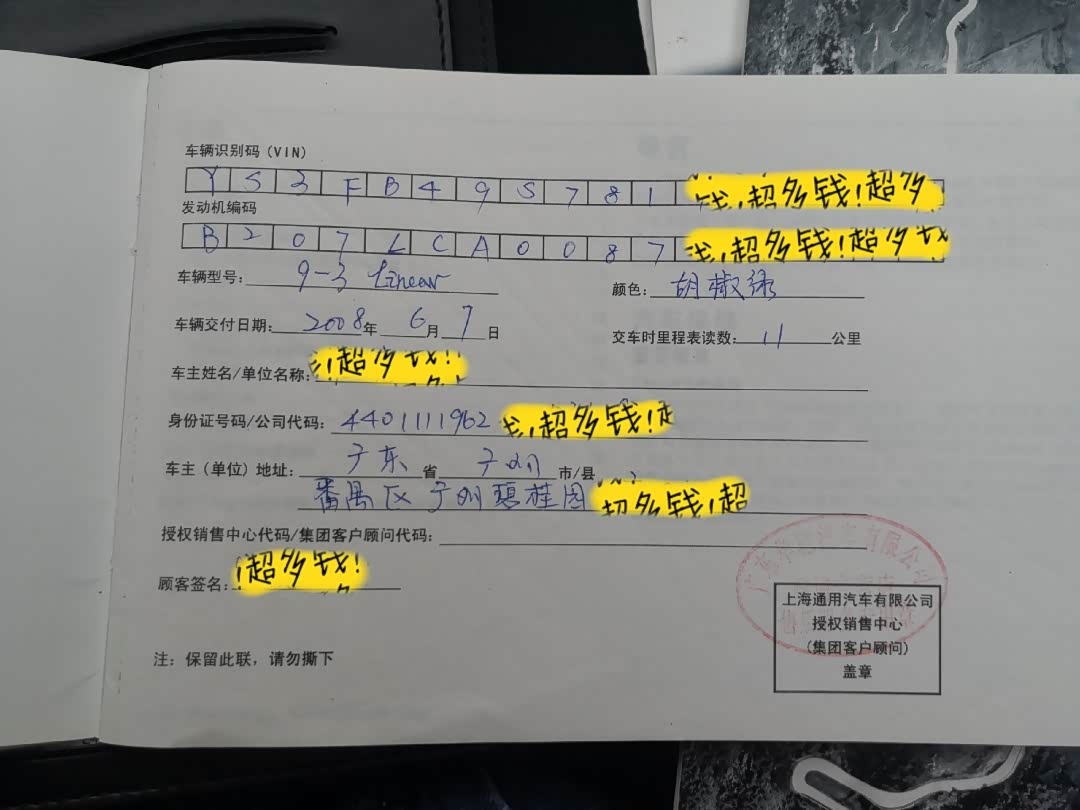 车辆识别码(VIN)
YS3FB49S781 钱!超多钱!超多
发动机编码
B207LCA0087 钱!超多钱!超多钱
车辆型号: 9-3 Linear 颜色: 胡椒绿
车辆交付日期: 2008年 6月 7日 交车时里程表读数: 11 公里
车主姓名/单位名称: !超多钱!
身份证号码/公司代码: 4401111962 !超多钱!
车主(单位)地址: 广东 省 广州 市/县
番禺区 广州碧桂园 超多钱!超
授权销售中心代码/集团客户顾问代码:
顾客签名: !超多钱!
上海通用汽车有限公司
授权销售中心
(集团客户顾问)
盖章
注: 保留此联,请勿撕下